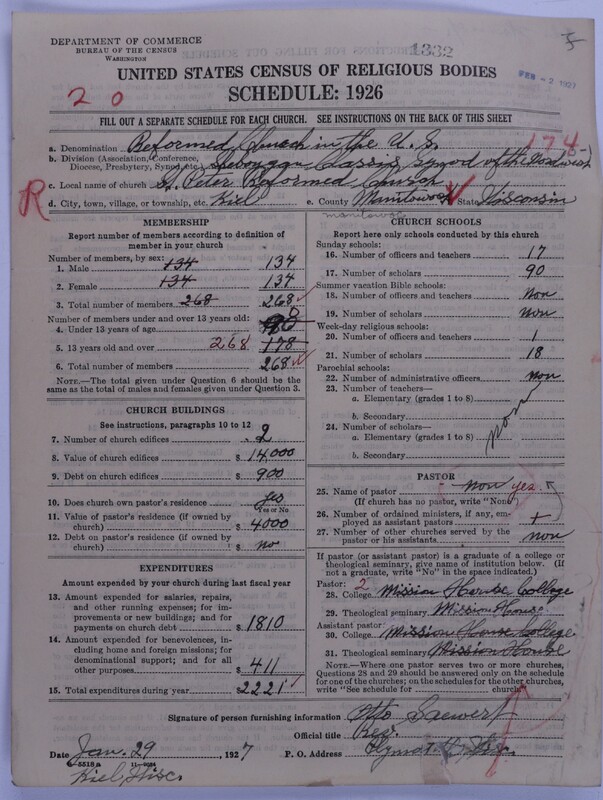 DEPARTMENT OF COMMERCE
BUREAU OF THE CENSUS
WASHINGTON
1332
FEB -2 1927
UNITED STATES CENSUS OF RELIGIOUS BODIES
SCHEDULE: 1926
2 0
FILL OUT A SEPARATE SCHEDULE FOR EACH CHURCH. SEE INSTRUCTIONS ON THE BACK OF THIS SHEET
a. Denomination Reformed Church in the U. S.
174-
b. Division (Association, Conference, Diocese, Presbytery, Synod, etc.) Sheboygan Classis, Synod of the Northwest
c. Local name of church St. Peter Reformed Church
R
d. City, town, village, or township, etc. Kiel e. County Manitowoc State Wisconsin
manitowoc
MEMBERSHIP
Report number of members according to definition of
member in your church
Number of members, by sex:
1. Male 134 134
2. Female 134 137
3. Total number of members 268 268
Number of members under and over 13 years old:
4. Under 13 years of age 0
5. 13 years old and over 268 178
6. Total number of members 268
NOTE.—The total given under Question 6 should be
same as the total of males and females given under Question 3.
CHURCH BUILDINGS
See instructions, paragraphs 10 to 12
7. Number of church edifices 2
8. Value of church edifices $ 14,000
9. Debt on church edifices $ 900
10. Does church own pastor's residence yes
Yes or No
11. Value of pastor's residence (if owned by
church) $ 4000
12. Debt on pastor's residence (if owned by
church) $ no
EXPENDITURES
Amount expended by your church during last fiscal year
13. Amount expended for salaries, repairs,
and other running expenses; for im-
provements or new buildings; and for
payments on church debt $ 1810
14. Amount expended for benevolences, in-
cluding home and foreign missions; for
denominational support; and for all
other purposes $ 411
15. Total expenditures during year $ 2221
CHURCH SCHOOLS
Report here only schools conducted by this church
Sunday schools:
16. Number of officers and teachers 17
17. Number of scholars 90
Summer vacation Bible schools:
18. Number of officers and teachers non
19. Number of scholars non
Week-day religious schools:
20. Number of officers and teachers 1
21. Number of scholars 18
Parochial schools:
22. Number of administrative officers non
23. Number of teachers—
a. Elementary (grades 1 to 8)
b. Secondary
non
24. Number of scholars—
a. Elementary (grades 1 to 8)
b. Secondary
PASTOR
25. Name of pastor non yes.
(If church has no pastor, write "None")
26. Number of ordained ministers, if any, em-
ployed as assistant pastors
27. Number of other churches served by the
pastor or his assistants non
If pastor (or assistant pastor) is a graduate of a college or
theological seminary, give name of institution below. (If
not a graduate, write "No" in the space indicated.)
Pastor: 2
28. College Mission House College
29. Theological seminary Mission House
Assistant pastor:
30. College Mission House College
31. Theological seminary Mission House
NOTE.—Where one pastor serves two or more churches,
Questions 28 and 29 should be answered only on the schedule
for one of the churches; on the schedules for the other churches,
write "See schedule for church"
Signature of person furnishing information Otto Saewert
Official title Rev.
Date Jan. 29, 1927 P. O. Address Plymouth, Wis.
Kiel, Wisc.